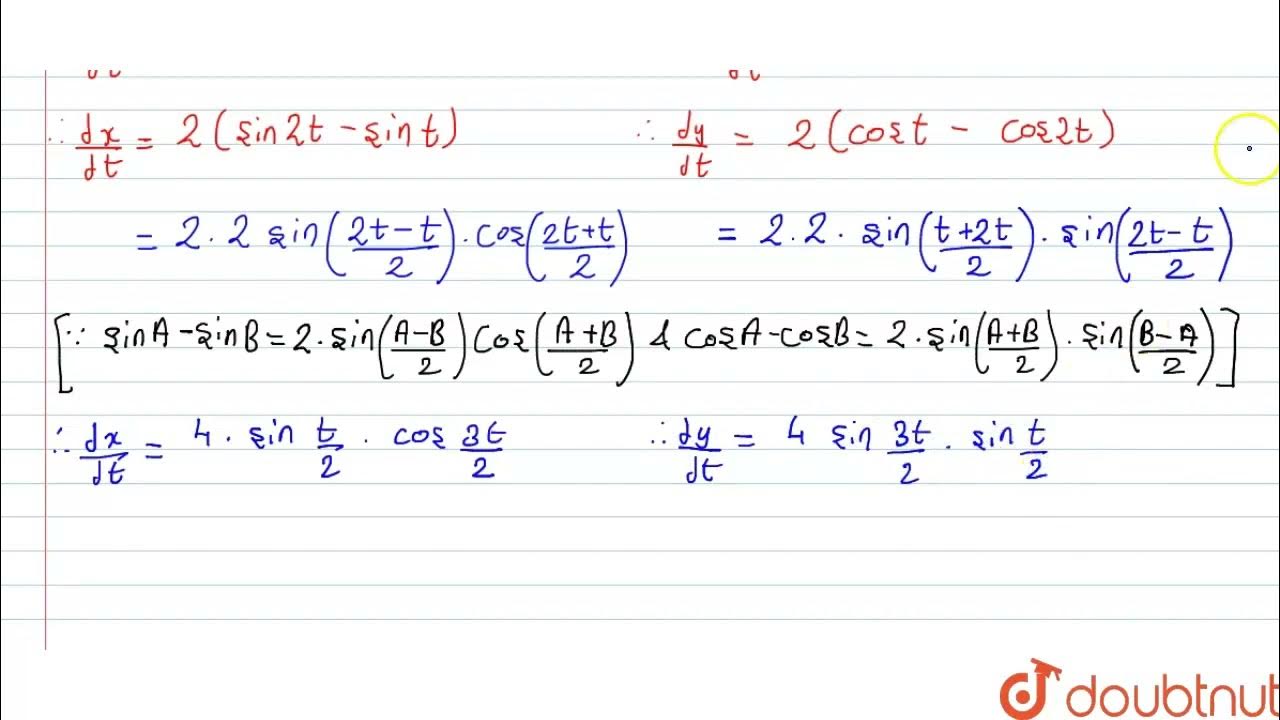 dt dt
∴ dx/dt = 2(sin2t - sint) ∴ dy/dt = 2(cost - cos2t)
= 2.2 sin((2t-t)/2).cos((2t+t)/2) = 2.2.sin((t+2t)/2).sin((2t-t)/2)
[∵ sinA - sinB = 2.sin((A-B)/2) cos((A+B)/2) & cosA - cosB = 2.sin((A+B)/2).sin((B-A)/2)]
∴ dx/dt = 4.sin t/2 . cos 3t/2 ∴ dy/dt = 4 sin 3t/2 . sin t/2
doubtnut